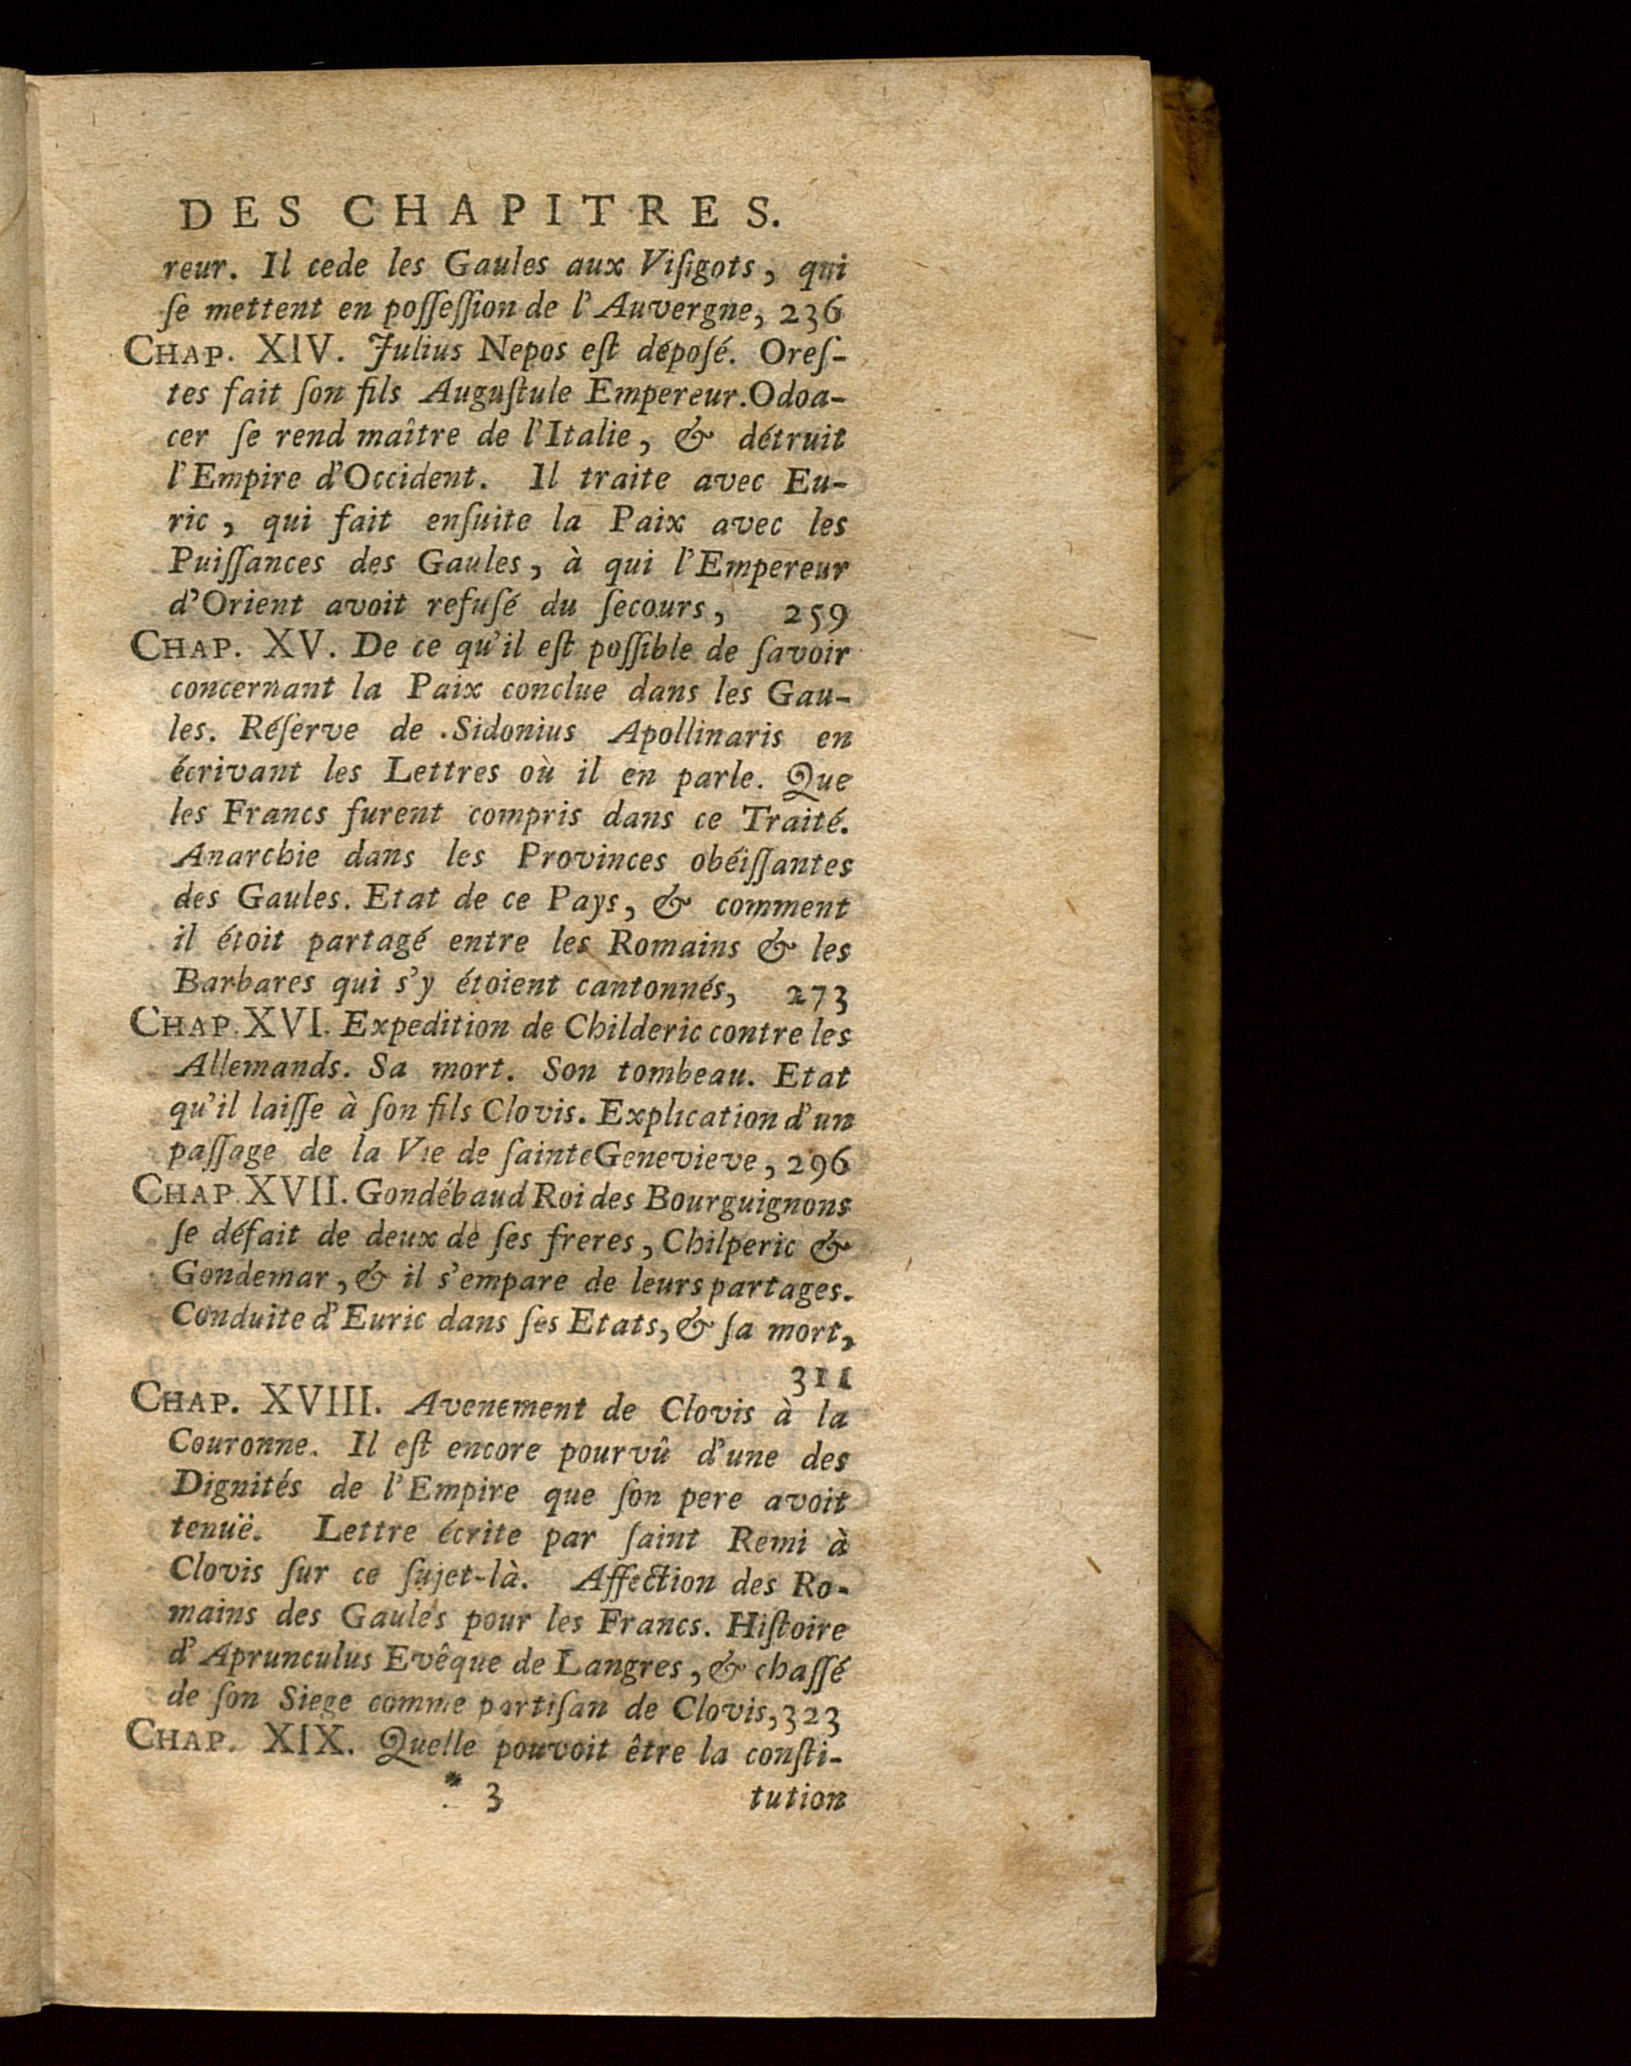 DES CHAPITRES.
reur. Il cede les Gaules aux Viſigots, qui
ſe mettent en poſſeſſion de l'Auvergne, 236
CHAP. XIV. Julius Nepos eſt dépoſé. Oreſ-
tes fait ſon fils Auguſtule Empereur. Odoa-
cer ſe rend maître de l'Italie, & détruit
l'Empire d'Occident. Il traite avec Eu-
ric, qui fait enſuite la Paix avec les
Puiſſances des Gaules, à qui l'Empereur
d'Orient avoit refuſé du ſecours, 259
CHAP. XV. De ce qu'il eſt poſſible de ſavoir
concernant la Paix conclue dans les Gau-
les. Réſerve de Sidonius Apollinaris en
écrivant les Lettres où il en parle. Que
les Francs furent compris dans ce Traité.
Anarchie dans les Provinces obéiſſantes
des Gaules. Etat de ce Pays, & comment
il étoit partagé entre les Romains & les
Barbares qui s'y étoient cantonnés, 273
CHAP. XVI. Expedition de Childeric contre les
Allemands. Sa mort. Son tombeau. Etat
qu'il laiſſe à ſon fils Clovis. Explication d'un
paſſage de la Vie de ſainte Genevieve, 296
CHAP. XVII. Gondébaud Roi des Bourguignons
ſe défait de deux de ſes freres, Chilperic &
Gondemar, & il s'empare de leurs partages.
Conduite d'Euric dans ſes Etats, & ſa mort,
311
CHAP. XVIII. Avenement de Clovis à la
Couronne. Il eſt encore pourvû d'une des
Dignités de l'Empire que ſon pere avoit
tenuë. Lettre écrite par ſaint Remi à
Clovis ſur ce ſujet-là. Affection des Ro-
mains des Gaules pour les Francs. Hiſtoire
d'Aprunculus Evêque de Langres, & chaſſé
de ſon Siege comme partiſan de Clovis, 323
CHAP. XIX. Quelle pouvoit être la conſti-
* 3 tution